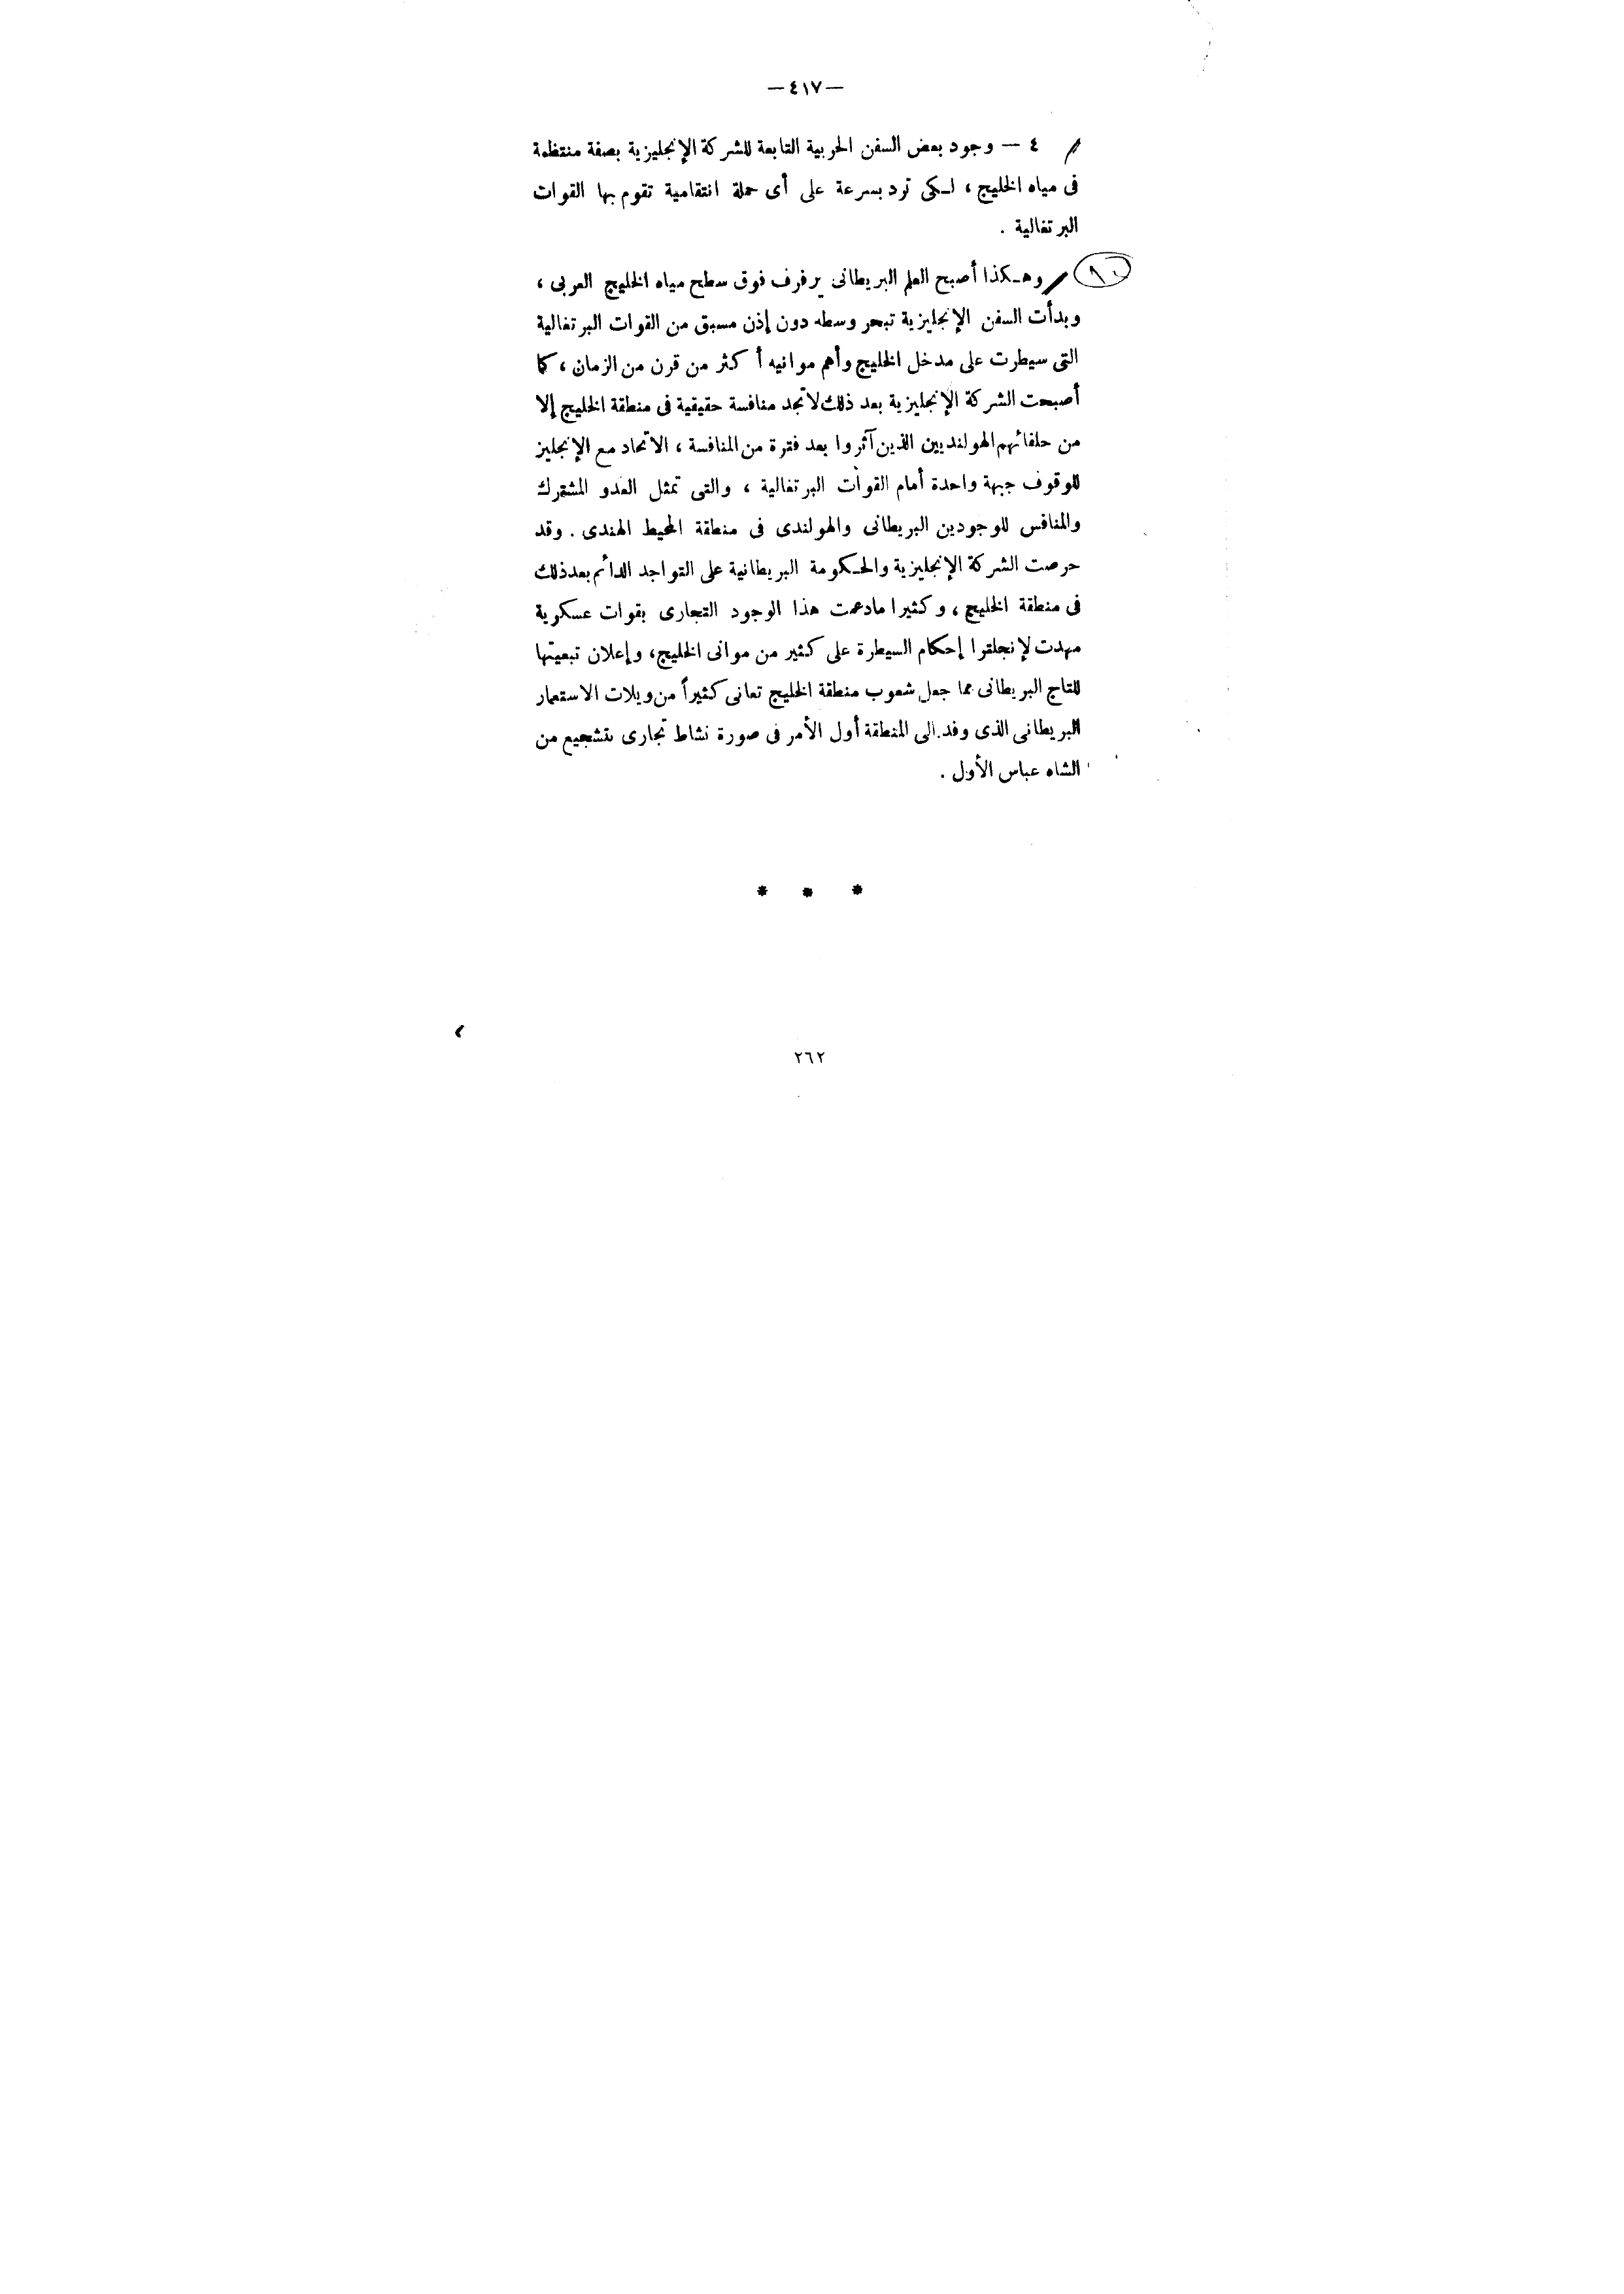 — ٤١٧ —
٤ — وجود بعض السفن الحربية التابعة للشركة الإنجليزية بصفة منتظمة
فى مياه الخليج ، لـكى ترد بسرعة على أى حملة انتقامية تقوم بها القوات
البرتغالية .
وهـكذا أصبح العلم البريطانى يرفرف فوق سطح مياه الخليج العربى ،
وبدأت السفن الإنجليزية تبحر وسطه دون إذن مسبق من القوات البرتغالية
التى سيطرت على مدخل الخليج وأهم موانيه أكثر من قرن من الزمان ، كما
أصبحت الشركة الإنجليزية بعد ذلك لا تجد منافسة حقيقية فى منطقة الخليج إلا
من حلفائهم الهولنديين الذين آثروا بعد فترة من المنافسة ، الاتحاد مع الإنجليز
للوقوف جبهة واحدة أمام القوات البرتغالية ، والتى تمثل العدو المشترك
والمنافس للوجودين البريطانى والهولندى فى منطقة المحيط الهندى . وقد
حرصت الشركة الإنجليزية والحـكومة البريطانية على التواجد الدائم بعد ذلك
فى منطقة الخليج ، وكثيرا ما دعمت هذا الوجود التجارى بقوات عسكرية
مهدت لإنجلترا إحكام السيطرة على كثير من موانى الخليج، وإعلان تبعيتها
للتاج البريطانى مما جعل شعوب منطقة الخليج تعانى كثيراً من ويلات الاستعمار
البريطانى الذى وفد إلى المنطقة أول الأمر فى صورة نشاط تجارى بتشجيع من
الشاه عباس الأول .
* * *
٢٦٢